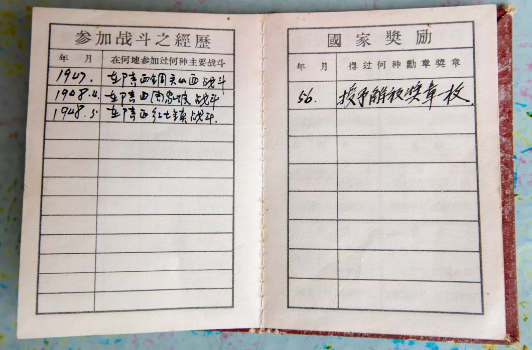 参加战斗之經歷
年 月 在何地参加过何种主要战斗
1947. 在陕西铜关山西战斗
1948.4. 在陕西周家坡战斗
1948.5. 在陕西红土镇战斗.
國家奬励
年 月 得过何种勳章奬章
56. 授予解放奖章 枚.